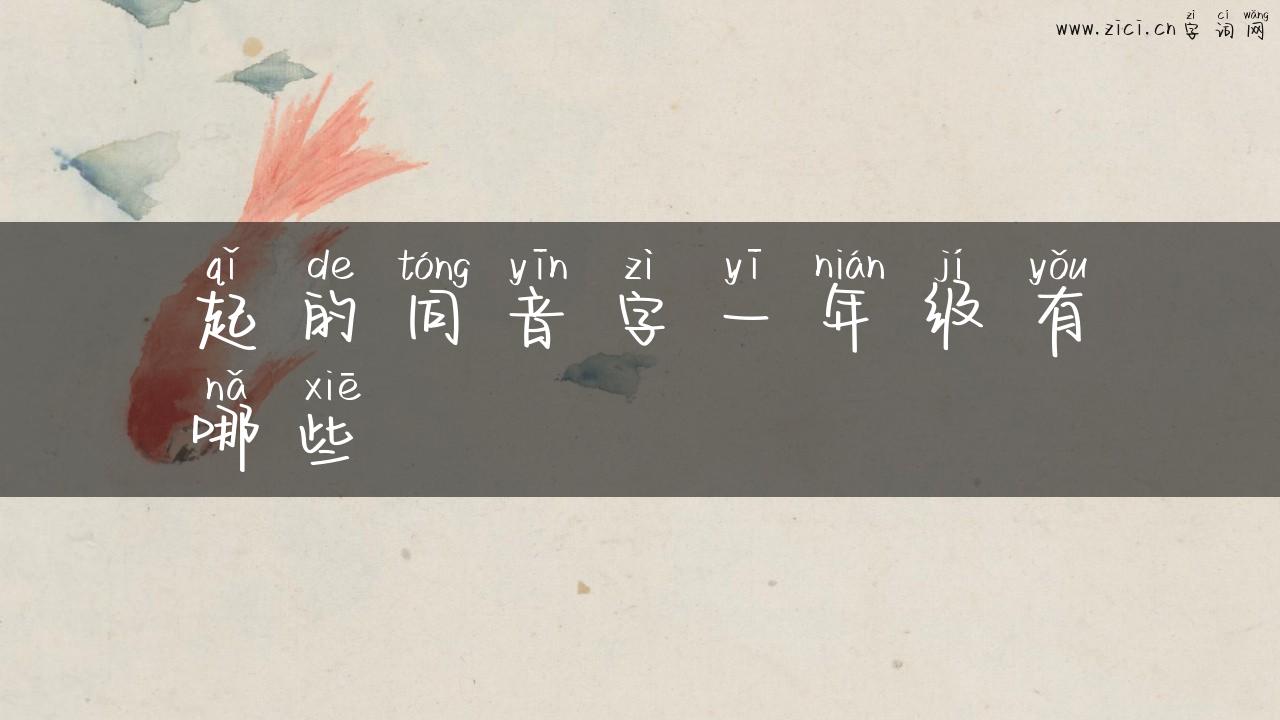 zì cí wǎng
www.zici.cn 字 词 网
qǐ de tóng yīn zì yī nián jí yǒu
起 的 同 音 字 一 年 级 有
nǎ xiē
哪 些